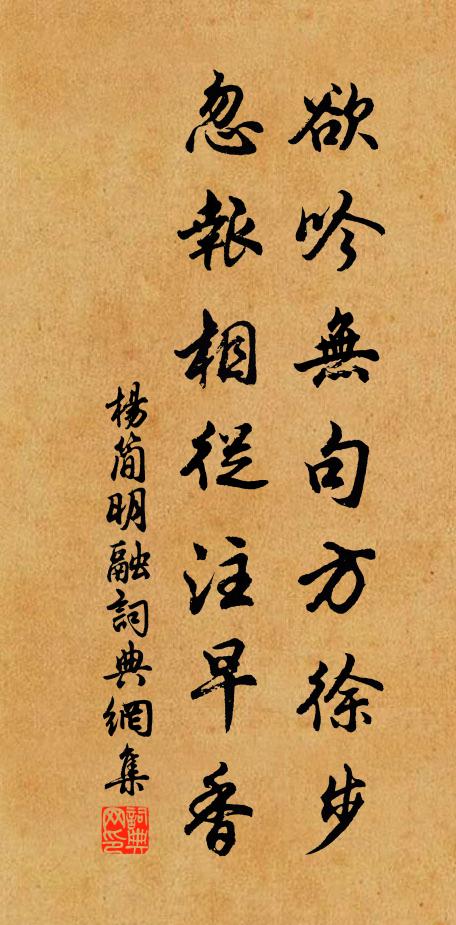 欲吟無句方徐步
忽報相從注早香
楊簡明融詞典網集
詞典网印